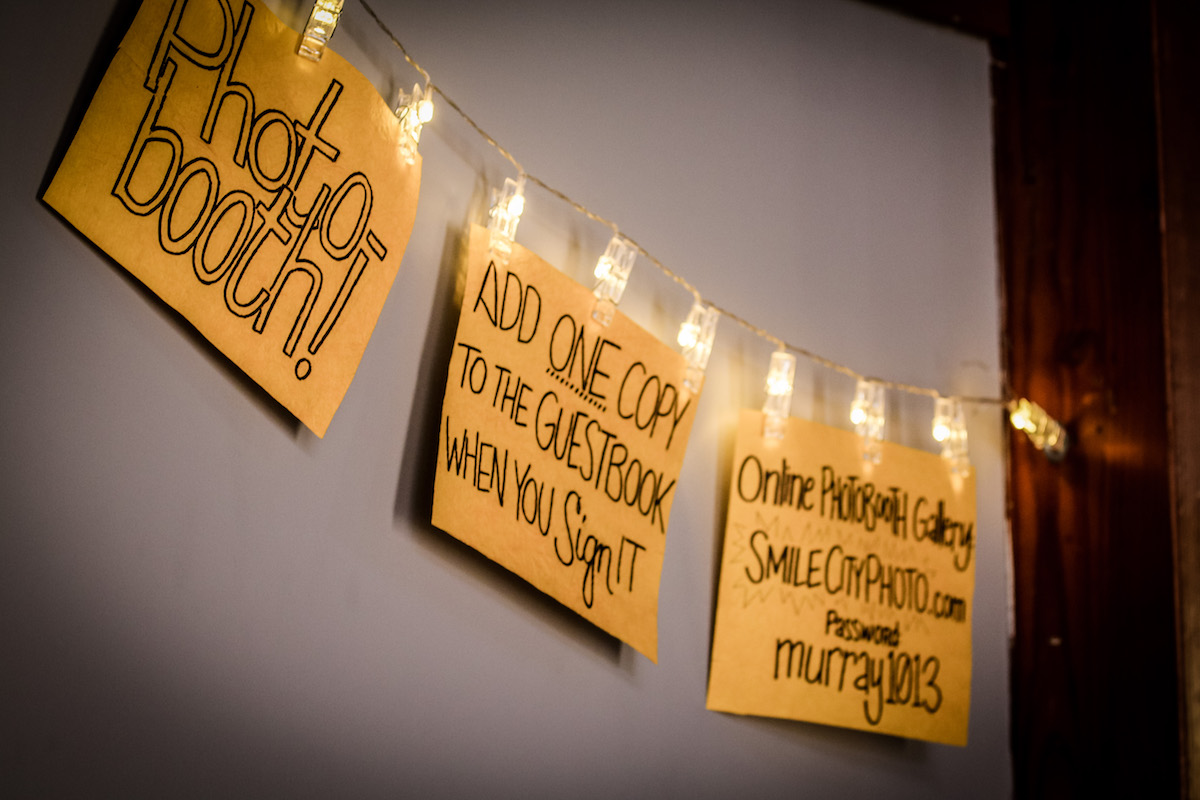 Photo
booth!
ADD ONE COPY
TO THE GUESTBOOK
WHEN YOU Sign IT
Online PHOTOBOOTH Gallery
SMILECITYPHOTO.com
Password
murray1013